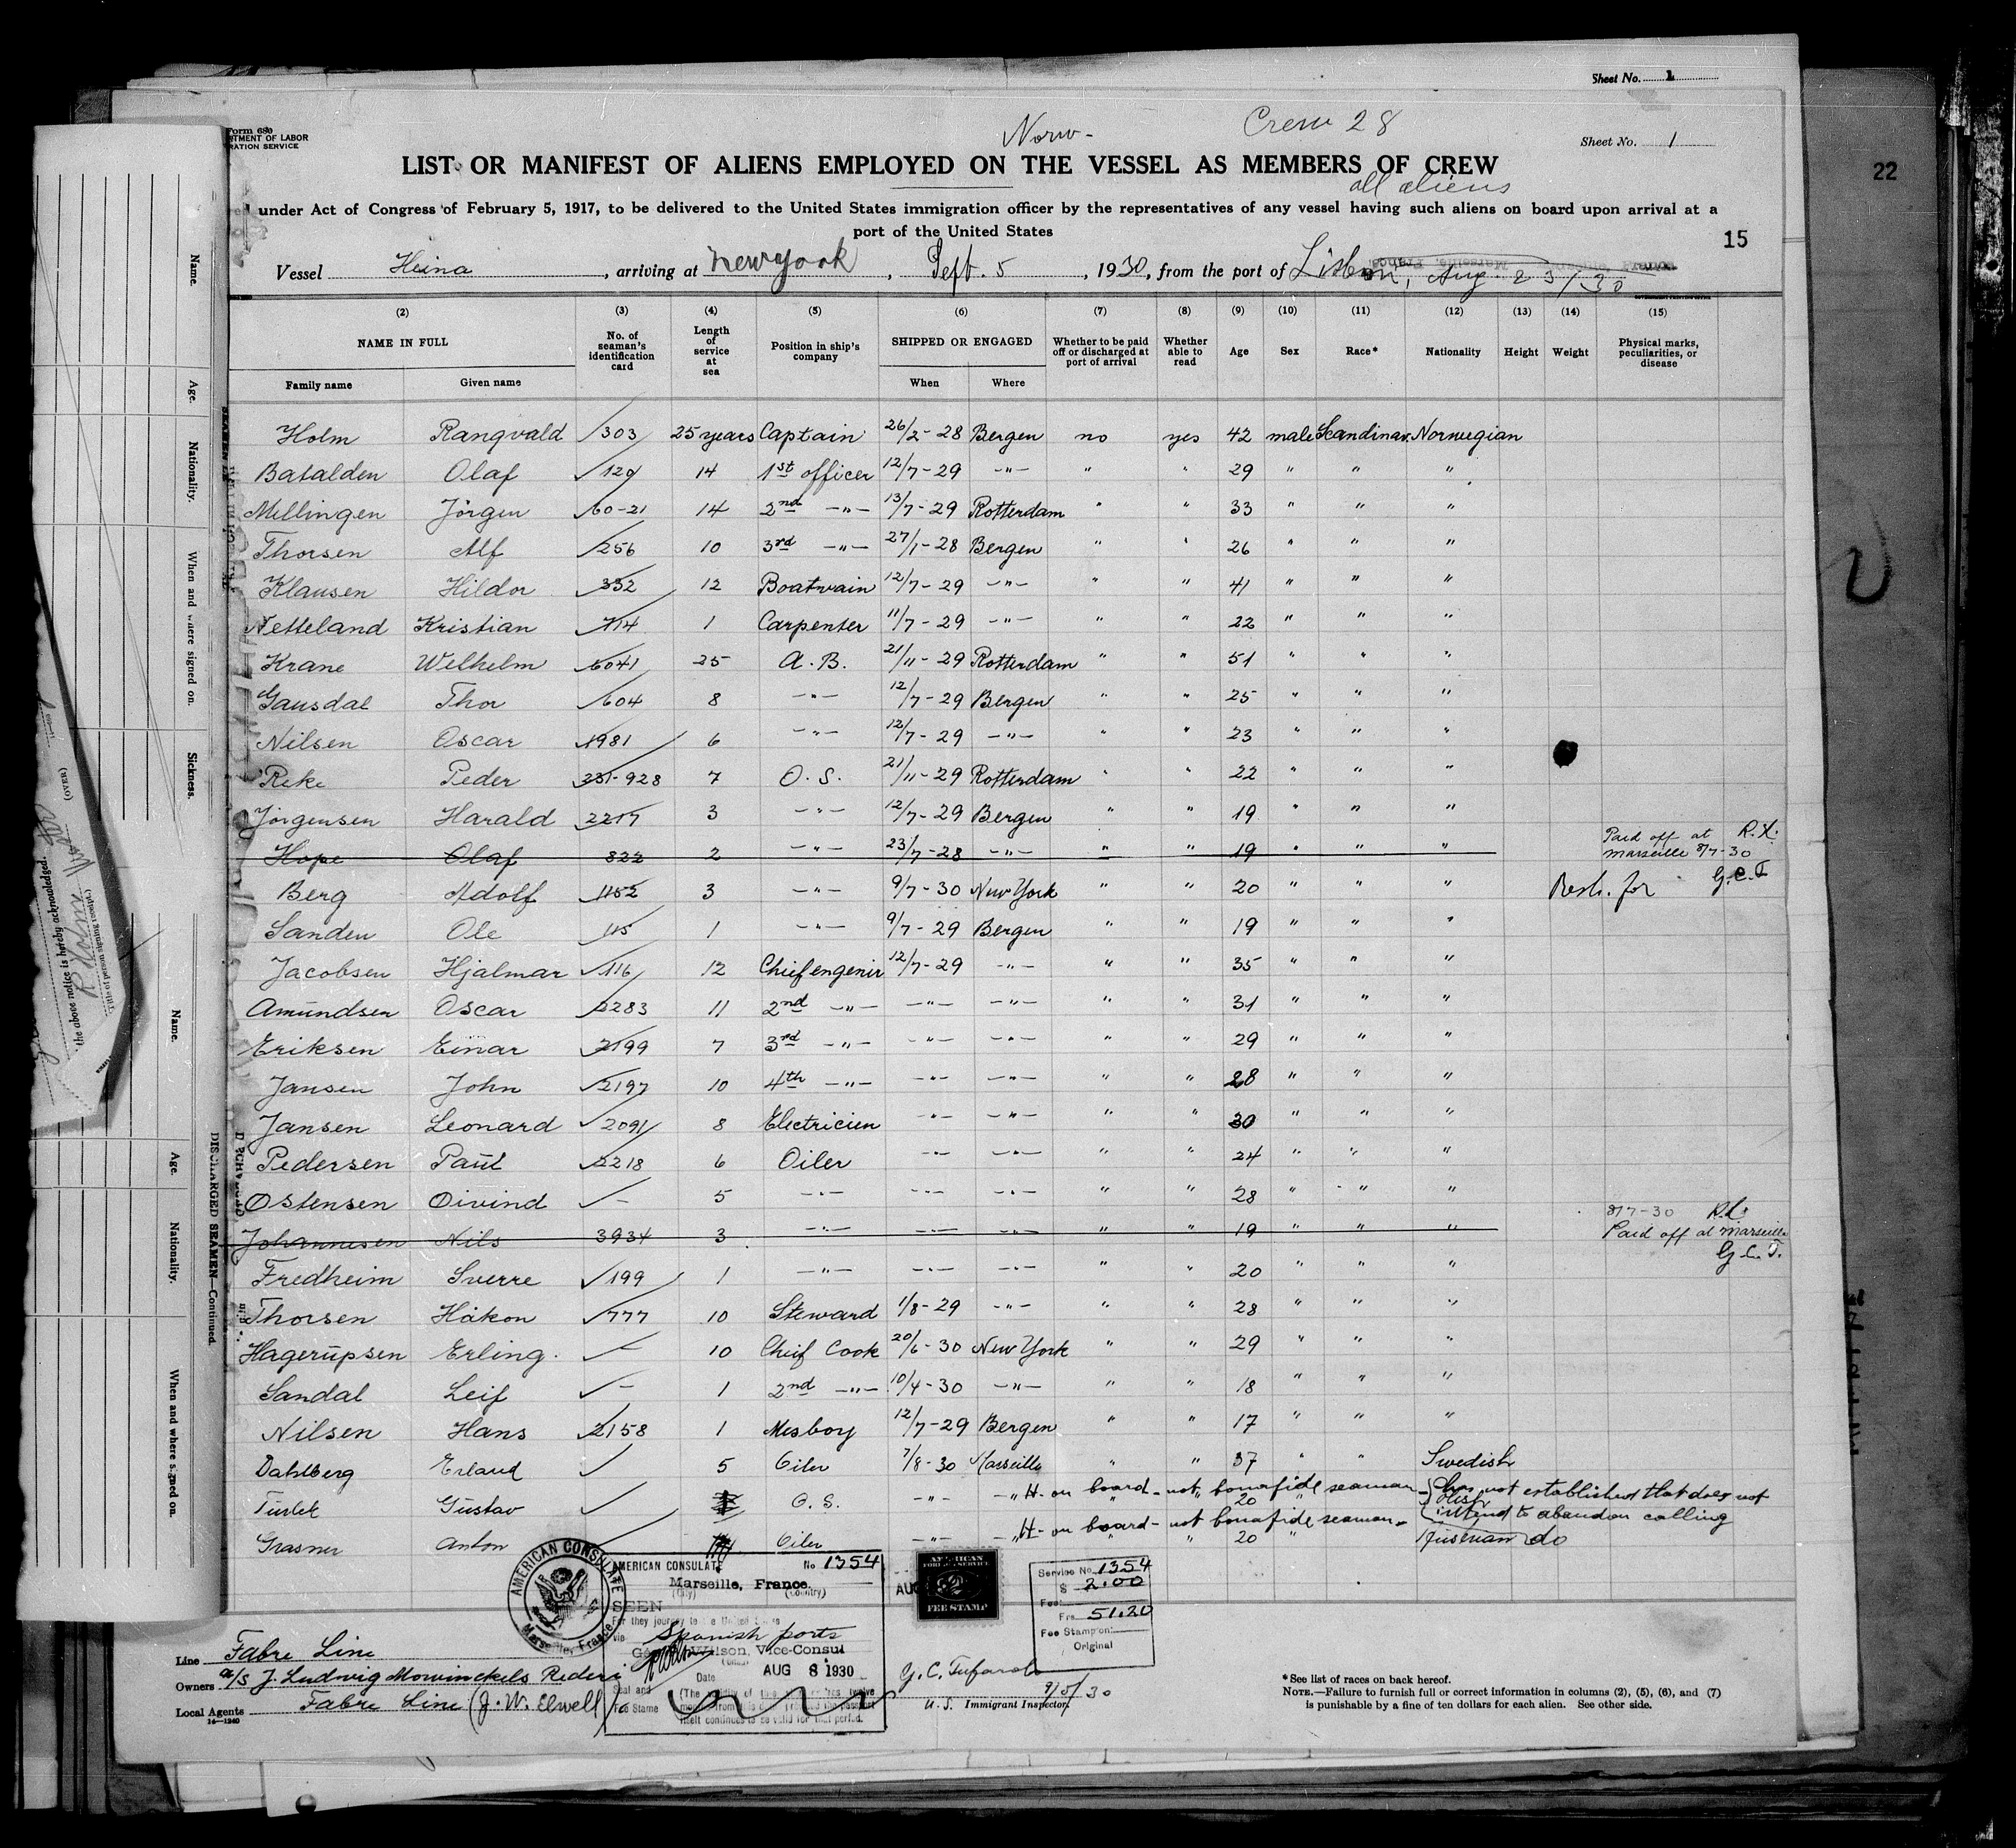 Sheet No. 1
Form 680
Norw-
Crew 28
Sheet No. 1
LIST OR MANIFEST OF ALIENS EMPLOYED ON THE VESSEL AS MEMBERS OF CREW
all aliens
22
under Act of Congress of February 5, 1917, to be delivered to the United States immigration officer by the representatives of any vessel having such aliens on board upon arrival at a
port of the United States
15
Vessel Heina, arriving at New York, Sept. 5, 1930, from the port of Lisbon, Aug. 23/30
(2) (3) (4) (5) (6) (7) (8) (9) (10) (11) (12) (13) (14) (15)
NAME IN FULL No. of seaman's identification card Length of service at sea Position in ship's company SHIPPED OR ENGAGED Whether to be paid off or discharged at port of arrival Whether able to read Age Sex Race* Nationality Height Weight Physical marks, peculiarities, or disease
Family name Given name When Where
Holm Rangvald 303 25 years Captain 26/2-28 Bergen no yes 42 male Scandinav. Norwegian
Batalden Olaf 129 14 1st officer 12/7-29 -"- " " 29 " " "
Mellingen Jörgen 60-21 14 2nd -"- 13/7-29 Rotterdam " " 33 " " "
Thorsen Alf 256 10 3rd -"- 27/1-28 Bergen " " 26 " " "
Klausen Hildor 332 12 Boatwain 12/7-29 -"- " " 41 " " "
Netteland Kristian 714 1 Carpenter 11/7-29 -"- " " 22 " " "
Krane Wilhelm 6041 25 A. B. 21/11-29 Rotterdam " " 51 " " "
Gausdal Thor 604 8 -"- 12/7-29 Bergen " " 25 " " "
Nilsen Oscar 1981 6 -"- 12/7-29 -"- " " 23 " " "
Reke Peder 331-928 7 O. S. 21/11-29 Rotterdam " " 22 " " "
Jörgensen Harald 2217 3 -"- 12/7-29 Bergen " " 19 " " "
Hope Olaf 822 2 -"- 23/7-28 -"- " " 19 " " " Paid off at Marseille 8/7-30
Berg Adolf 1152 3 -"- 9/7-30 New York " " 20 " " " G.C.T
Sanden Ole 115 1 -"- 9/7-29 Bergen " " 19 " " "
Jacobsen Hjalmar 116 12 Chief engenir 12/7-29 -"- " " 35 " " "
Amundsen Oscar 2283 11 2nd -"- -"- -"- " " 31 " " "
Eriksen Einar 2199 7 3rd -"- -"- -"- " " 29 " " "
Jansen John 2197 10 4th -"- -"- -"- " " 28 " " "
Jansen Leonard 2091 8 Electricien -"- -"- " " 30 " " "
Pedersen Paul 2218 6 Oiler -"- -"- " " 24 " " "
Ostensen Oivind - 5 -"- -"- -"- " " 28 " " "
Johannesen Nils 3934 3 -"- -"- -"- " " 19 " " " 8/7-30 Paid off at Marseille
Fredheim Sverre 199 1 -"- -"- -"- " " 20 " " " G.C.T.
Thorsen Håkon 777 10 Steward 1/8-29 -"- " " 28 " " "
Hagerupsen Erling. - 10 Chief Cook 20/6-30 New York " " 29 " " "
Sandal Leif - 1 2nd -"- 10/4-30 -"- " " 18 " " "
Nilsen Hans 2158 1 Mesboy 12/7-29 Bergen " " 17 " " "
Dahlberg Erland 5 Oiler 7/8-30 Marseille " " 37 " " Swedish
Gustav O. S. -"- -"- H- on board - not bonafide seaman - 20 not established that does not
intend to abandon calling
Grasner Anton Oiler -"- -"- H- on board - not bonafide seaman - 20 do
AMERICAN CONSULATE Marseille, France
AMERICAN CONSULATE No 1354
Marseille, France.
(City) (Country)
SEEN
For they journey to the United States
via Spanish ports
Wilson, Vice-Consul
Date AUG 8 1930
Seal and
Fee Stamp
AMERICAN FOREIGN SERVICE
FEE STAMP
Service No. 1354
$ 2.00
Fee:
Frs 51.20
Fee Stamp on:
Original
Line Fabre Line
Owners A/S J. Ludwig Mowinckels Rederi
Local Agents Fabre Line (J. W. Elwell)
14—1240
9/5/30
U. S. Immigrant Inspector
*See list of races on back hereof.
NOTE.—Failure to furnish full or correct information in columns (2), (5), (6), and (7)
is punishable by a fine of ten dollars for each alien. See other side.
Name.
Age.
Nationality.
When and where signed on.
Sickness.
(OVER)
the above notice is hereby acknowledged.
R Holm Master
(Title of person signing receipt.)
Name.
Age.
Nationality.
When and where signed on.
DISCHARGED SEAMEN—Continued.